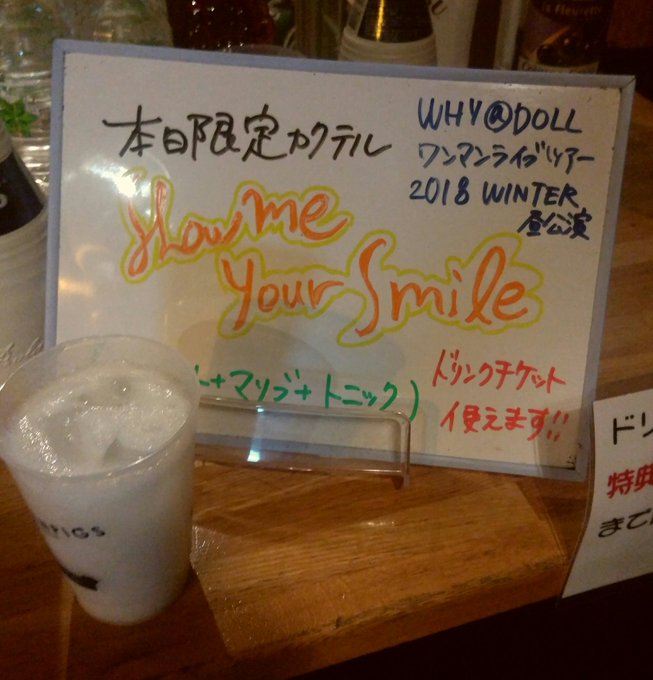 本日限定カクテル
WHY@DOLL
ワンマンライブツアー
2018 WINTER
昼公演
Show me
your Smile
ト+マリブ+トニック)
ドリンクチケット
使えます!!
PIGS
ドリ
特典
まで
la Fleurette